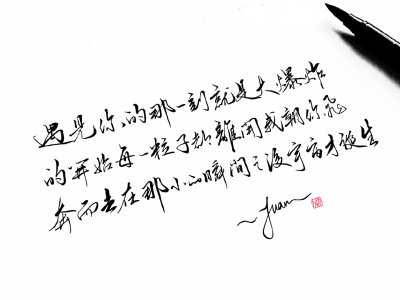 遇见你的那一刻就是大爆炸
的开始每一粒子都離開我朝你飛
奔而去在那小的瞬间之後宇宙才诞生
~Juan~